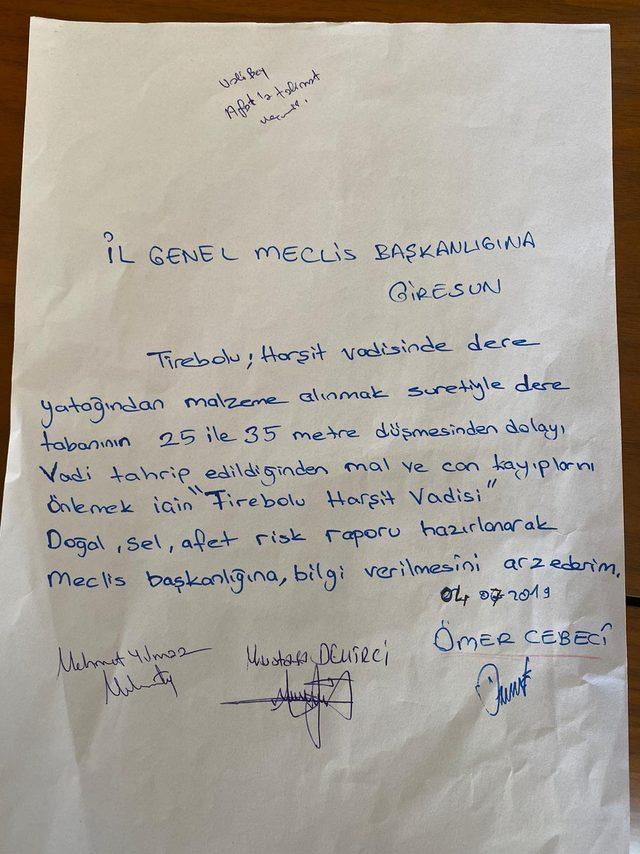 Vali Bey
Afat'a talimat
İL GENEL MECLİS BAŞKANLIGINA
GİRESUN
Tirebolu; Harşit vadisinde dere
yatağından malzeme alınmak suretiyle dere
tabanının 25 ile 35 metre düşmesinden dolayı
Vadi tahrip edildiğinden mal ve can kayıplarnı
Önlemek için "Tirebolu Harşit Vadisi"
Doğal, sel, afet risk raporu hazırlanarak
Meclis başkanlığına, bilgi verilmesini arzederim.
04 07 2019
ÖMER CEBECİ
Mehmet Yılmaz
Mustafa DEMİRCİ